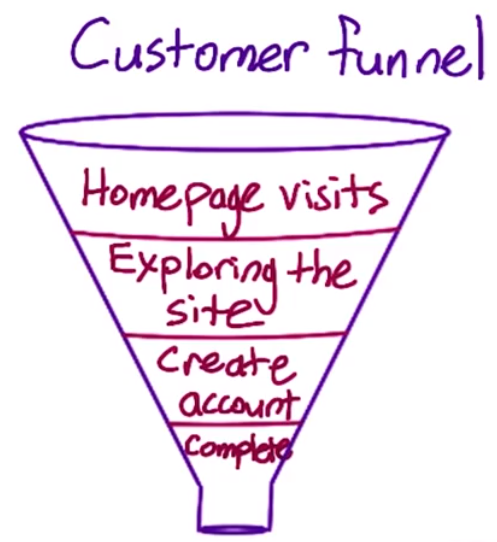 Customer funnel
Homepage visits
Exploring the
site
Create
account
Complete